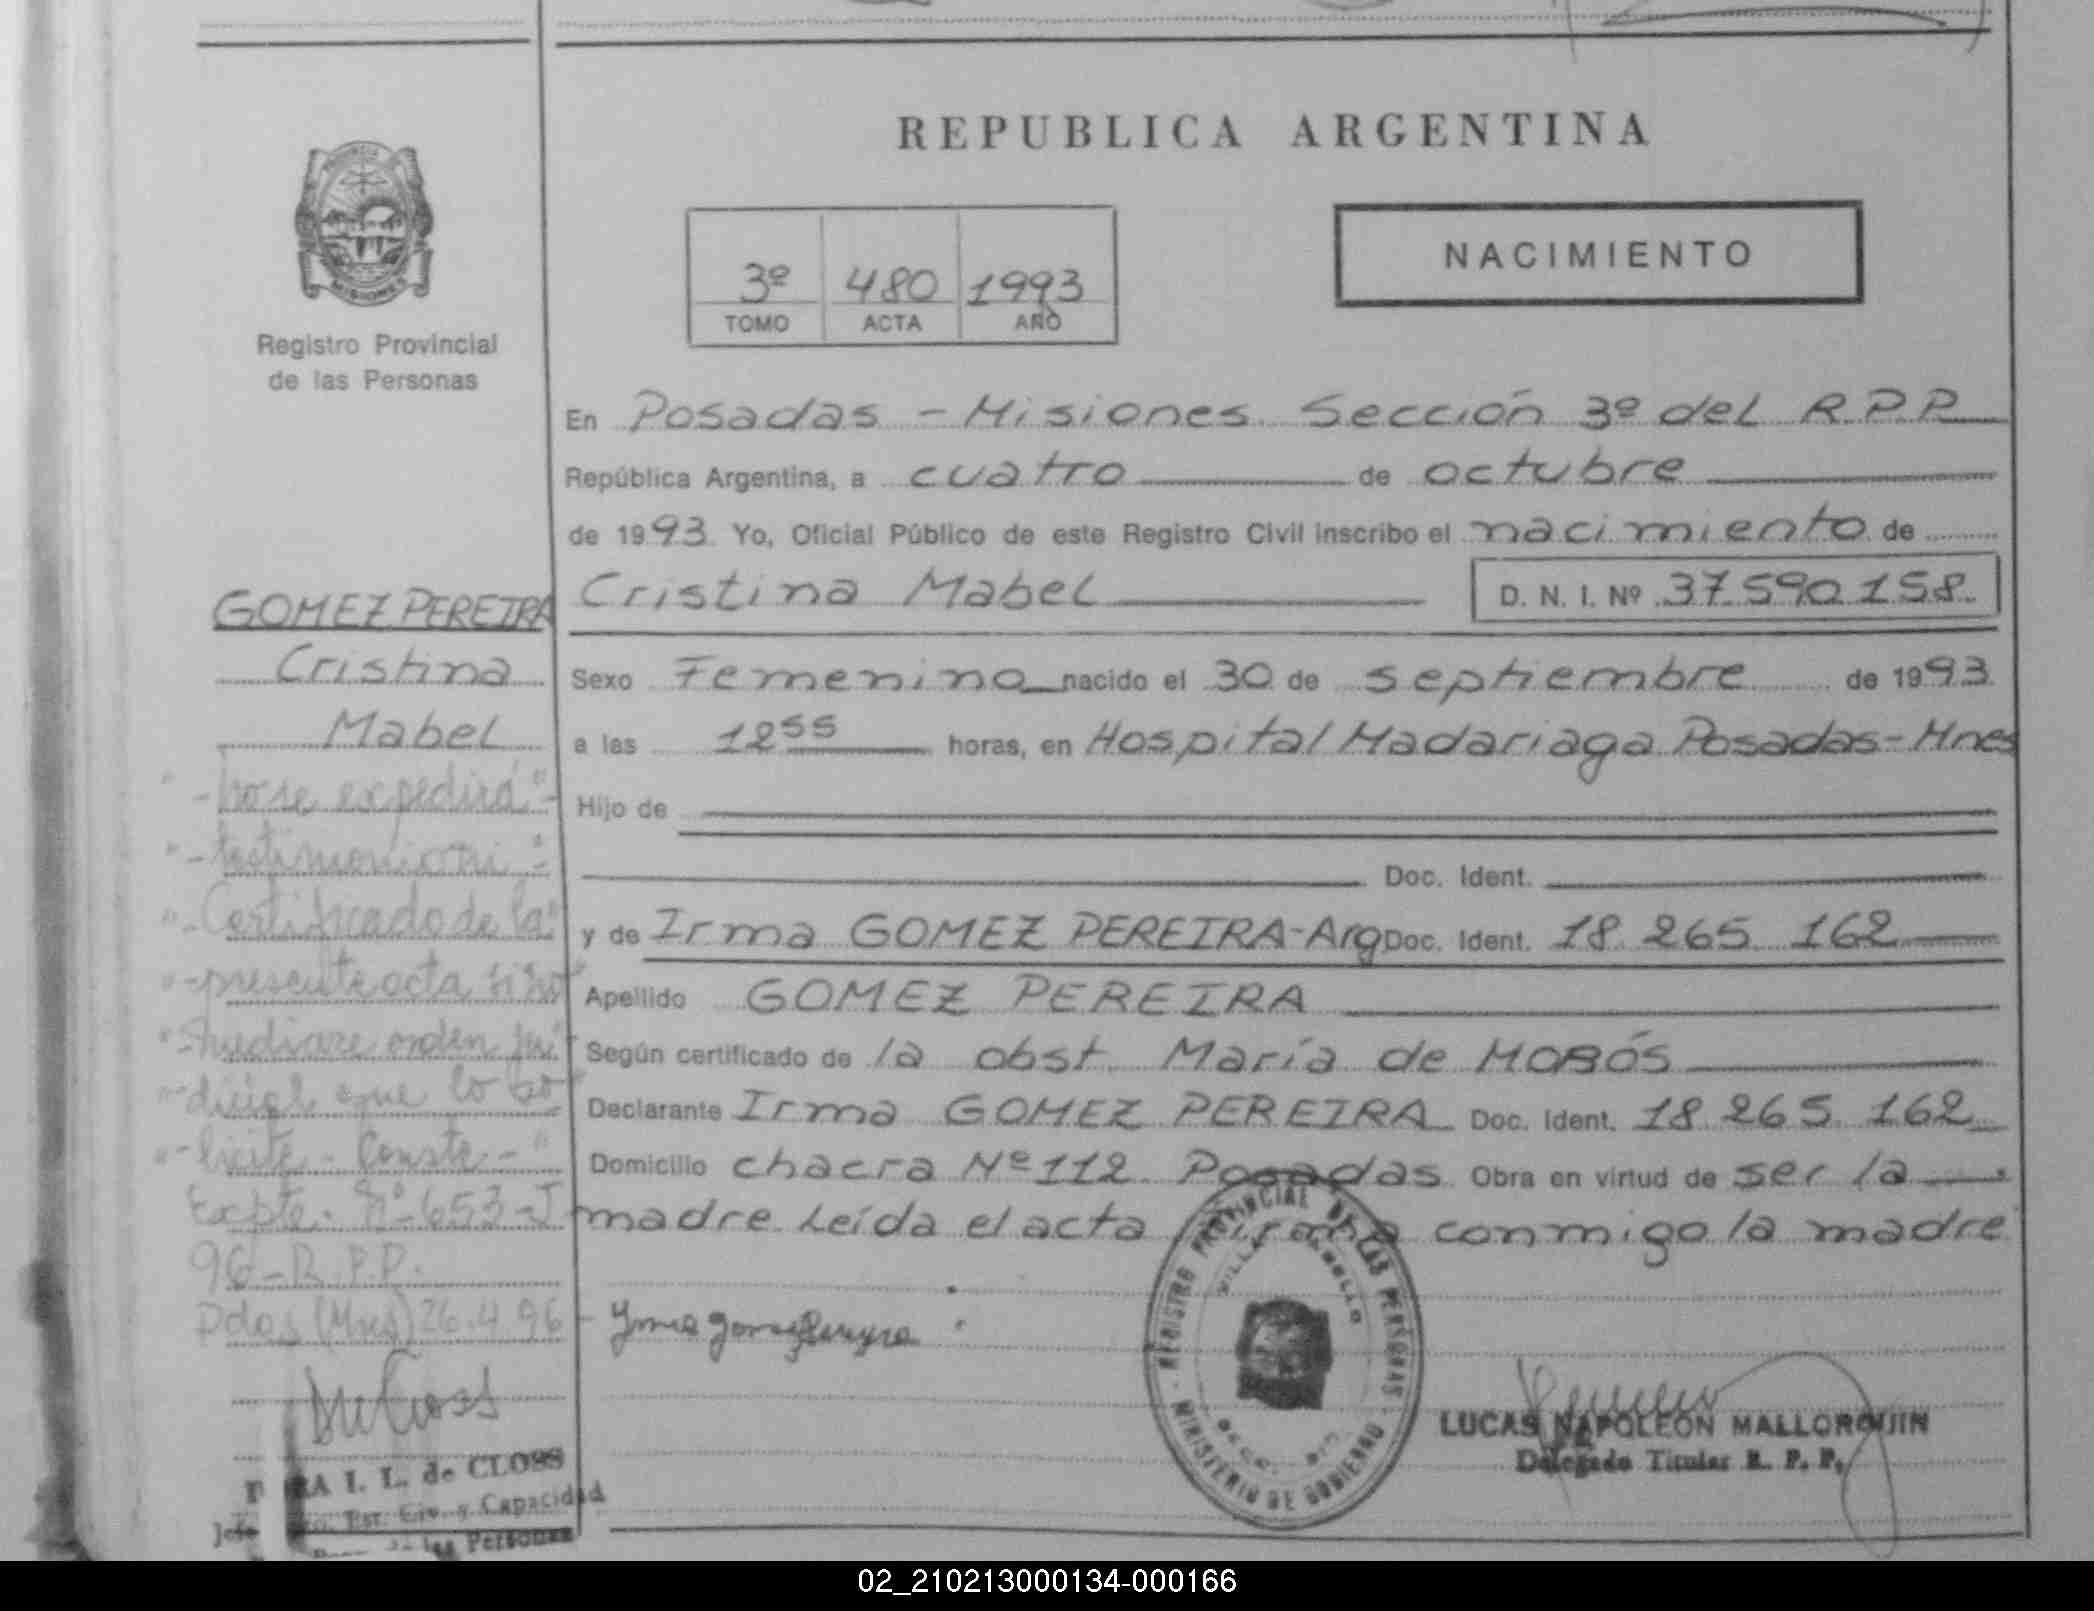 REPUBLICA ARGENTINA
NACIMIENTO
3º 480 1993
TOMO ACTA AÑO
PROVINCIA DE
MISIONES
Registro Provincial
de las Personas
En Posadas - Misiones. Sección 3º del R.P.P.
República Argentina, a cuatro de octubre
de 1993. Yo, Oficial Público de este Registro Civil inscribo el nacimiento de
Cristina Mabel D. N. I. Nº 37.590.158.
Sexo Femenino nacido el 30 de septiembre de 1993.
a las 12 55 horas, en Hospital Madariaga Posadas-Mnes
Hijo de
Doc. Ident.
y de Irma GOMEZ PEREIRA-Arg Doc. Ident. 18.265.162
Apellido GOMEZ PEREIRA
Según certificado de la obst. María de MOROS
Declarante Irma GOMEZ PEREIRA Doc. Ident. 18.265.162
Domicilio chacra Nº 112 Posadas. Obra en virtud de ser la
madre. Leída el acta firma conmigo la madre
GOMEZ PEREIRA
Cristina
Mabel
"-No se expedirá"-
"-testimonio ni"-
"-Certificado de la"
"-presente acta si no"
"-mediare orden ju"
"-dicial que lo so"
"-licite - Conste-"
Expte. Nº 653-J
96-R.P.P.
Pdas (Mnes) 26.4.96
I. L. de CLOSS
Est. Civ. y Capacidad
de las Personas
REGISTRO PROVINCIAL DE LAS PERSONAS
MINISTERIO DE GOBIERNO
LUCAS NAPOLEON MALLORQUIN
Delegado Titular R. P. P.
02_210213000134-000166